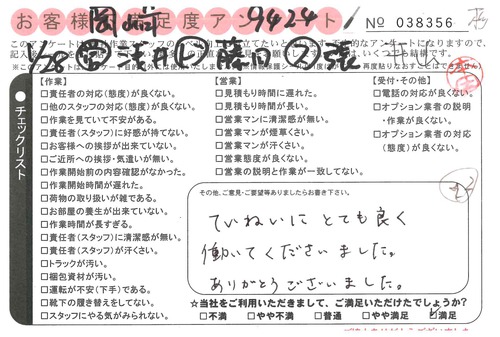 お客様満足度アンケート
岡崎
9424
No 038356
1/28
浅井
藤田
張
チェックリスト
【作業】
□責任者の対応(態度)が良くない。
□他のスタッフの対応(態度)が良くない。
□作業を見ていて不安がある。
□責任者(スタッフ)に好感が持てない。
□お客様への挨拶が出来ていない。
□ご近所への挨拶・気遣いが無い。
□作業開始前の内容確認がなかった。
□作業開始時間が遅れた。
□荷物の取り扱いが雑である。
□お部屋の養生が出来ていない。
□作業時間が長すぎる。
□責任者(スタッフ)に清潔感が無い。
□責任者(スタッフ)が汗くさい。
□トラックが汚い。
□梱包資材が汚い。
□運転が不安(下手)である。
□靴下の履き替えをしてない。
□スタッフにやる気がみられない。
【営業】
□見積もり時間に遅れた。
□見積もり時間が長い。
□営業マンに清潔感が無い。
□営業マンが煙草くさい。
□営業マンが汗くさい。
□営業態度が良くない。
□営業の説明と作業が一致してない。
【受付・その他】
□電話の対応が良くない。
□オプション業者の説明
・作業が良くない。
□オプション業者の対応
(態度)が良くない。
その他、ご意見・ご要望等ありましたらお書き下さい。
ていねいに とても良く
働いてくださいました。
ありがとうございました。
☆当社をご利用いただきまして、ご満足いただけたでしょうか?
□不満 □やや不満 □普通 □やや満足 □満足